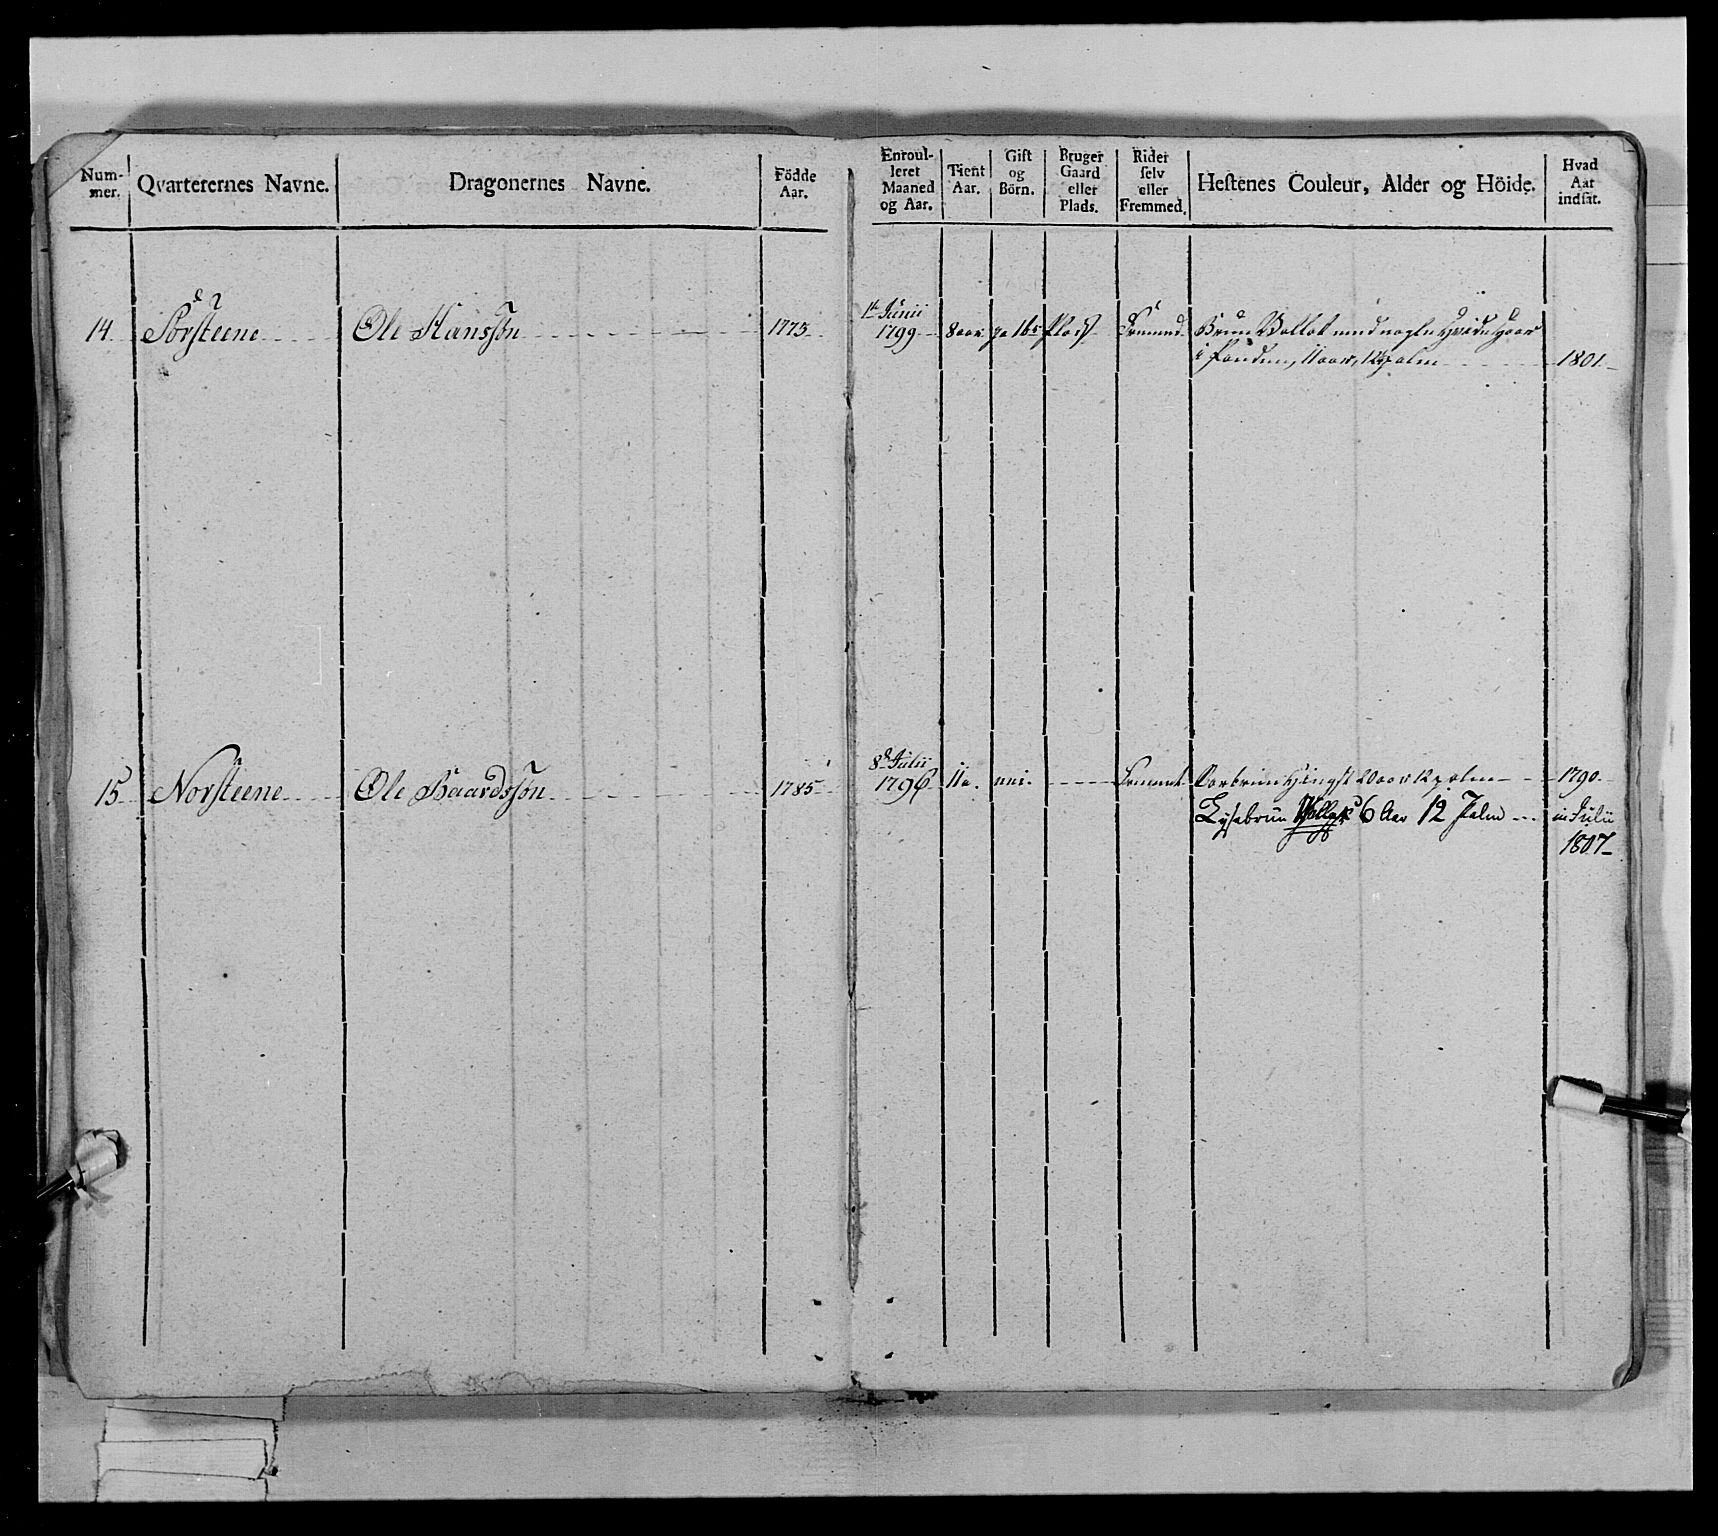 Num-
mer.
Qvarterernes Navne.
Dragonernes Navne.
Födde
Aar.
Enroul-
leret
Maaned
og Aar.
Tient
Aar.
Gift
og
Börn.
Bruger
Gaard
eller
Plads.
Rider
selv
eller
Fremmed.
Hestenes Couleur, Alder og Höide.
Hvad
Aar
indsat.
14 Sörsteene Ole Hanssön 1775 1te Junii
1799 8 aar ja 1 b: Plads Fremmed Bruun Vallak med nogle hvide haar
i Panden, 11 aar, 12 palm 1801
15 Norsteene Ole Baardssön 1785 8de Julii
1796 11 a. nei Fremmet hingst 20 aar 12 palm 1790
Lysebrun Vallak 6 Aar 12 Palm
in Julii
1807